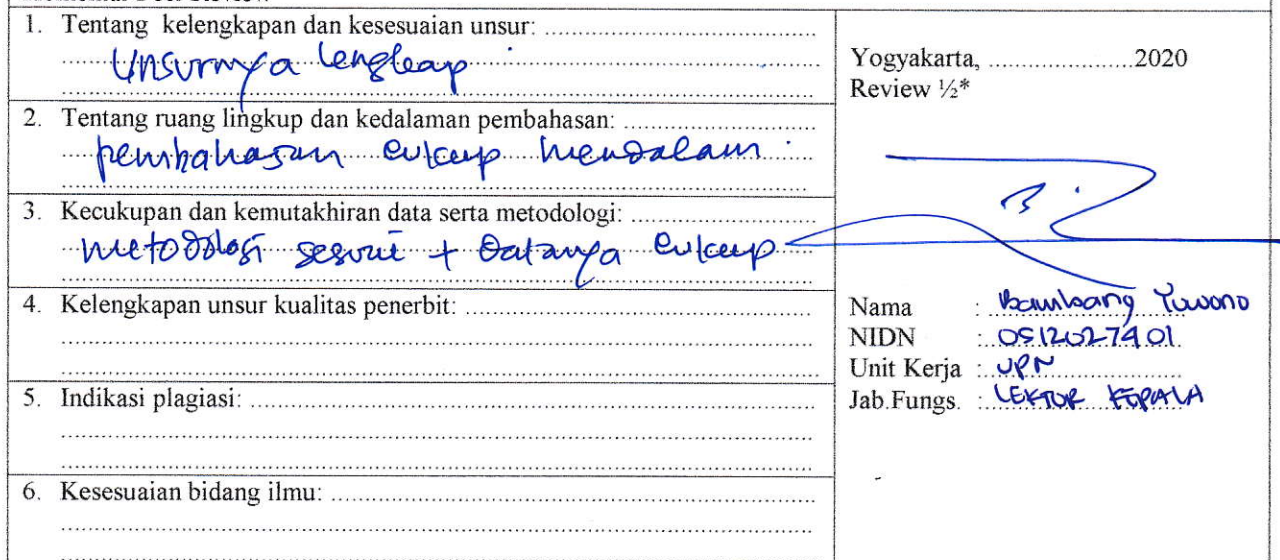 1. Tentang kelengkapan dan kesesuaian unsur: ......................................
Unsurnya lengkap
2. Tentang ruang lingkup dan kedalaman pembahasan: ...........................
pembahasan cukup mendalam
3. Kecukupan dan kemutakhiran data serta metodologi: ..........................
metodologi sesuai + datanya cukup
4. Kelengkapan unsur kualitas penerbit: ..................................................
5. Indikasi plagiasi: ...............................................................................
6. Kesesuaian bidang ilmu: ....................................................................
Yogyakarta, .....................2020
Review ½*
Nama : Bambang Yuwono
NIDN : 0512027401
Unit Kerja : UPN
Jab.Fungs. : LEKTOR KEPALA